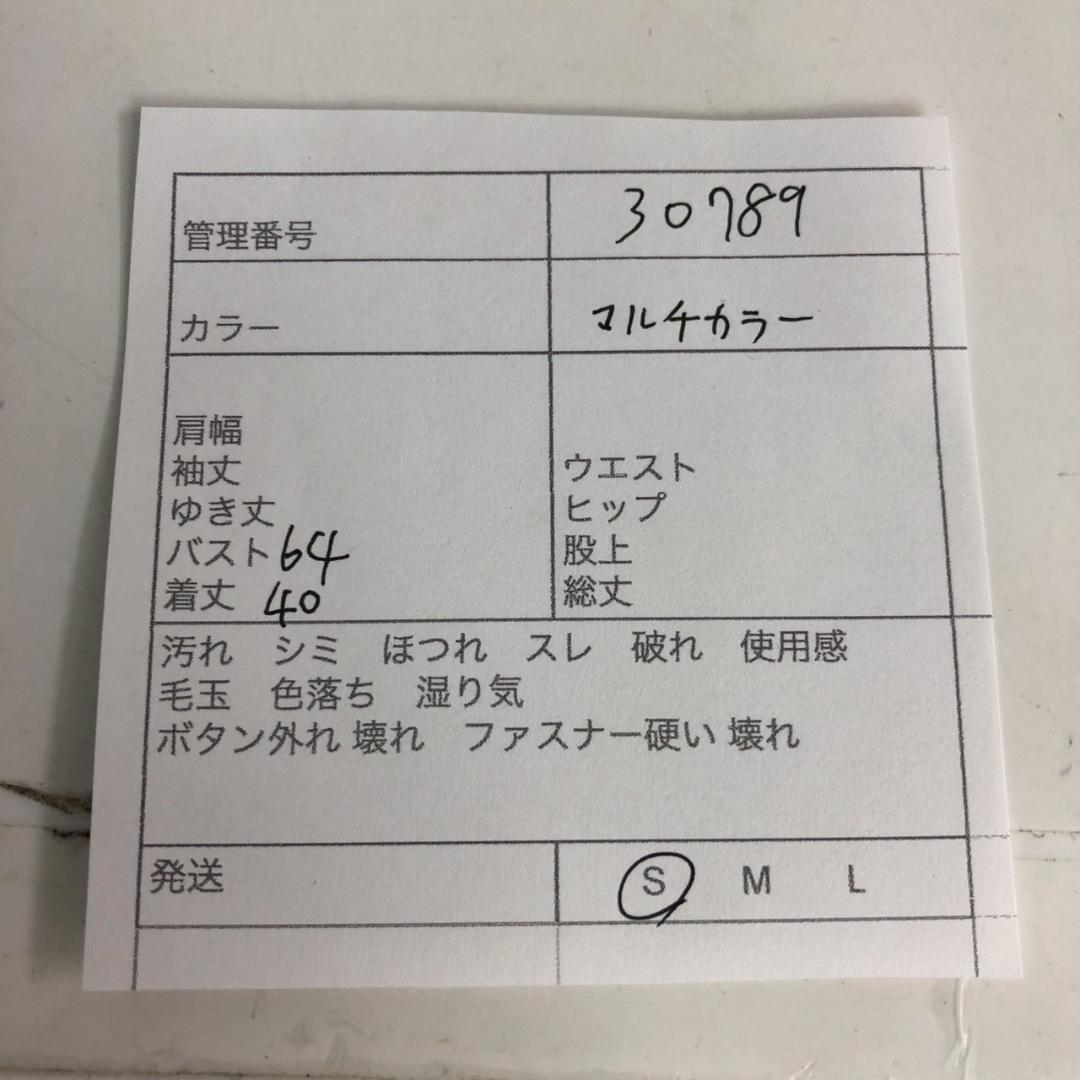 管理番号 30789
カラー マルチカラー
肩幅
袖丈
ゆき丈
バスト 64
着丈 40
ウエスト
ヒップ
股上
総丈
汚れ シミ ほつれ スレ 破れ 使用感
毛玉 色落ち 湿り気
ボタン外れ 壊れ ファスナー硬い 壊れ
発送 S M L